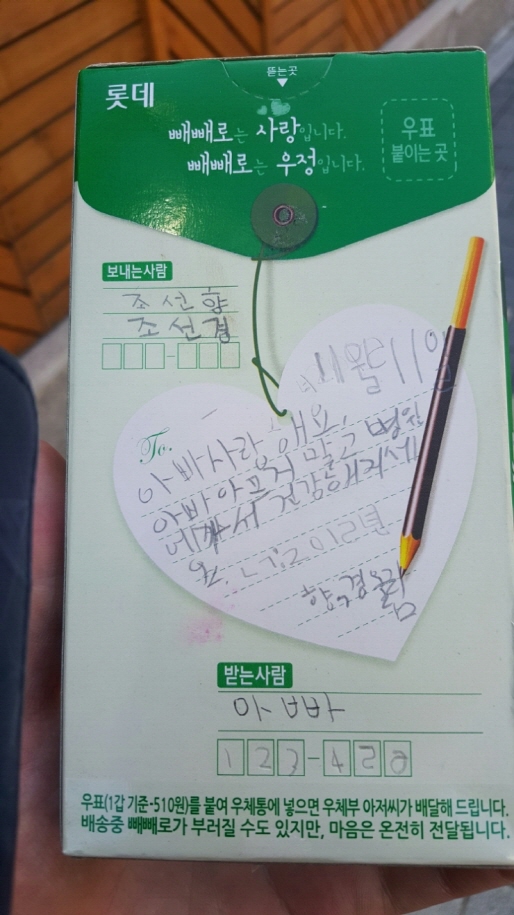 뜯는곳
롯데
빼빼로는 사랑입니다.
빼빼로는 우정입니다.
우표
붙이는 곳
보내는사람
조선향
조선경
11월11일
To.
아빠사랑해요
아빠아프지 말고 병원
에가서 건강해지세
요. 2012년
향, 경올림
받는사람
아빠
123-422
우표(1갑 기준-510원)를 붙여 우체통에 넣으면 우체부 아저씨가 배달해 드립니다.
배송중 빼빼로가 부러질 수도 있지만, 마음은 온전히 전달됩니다.